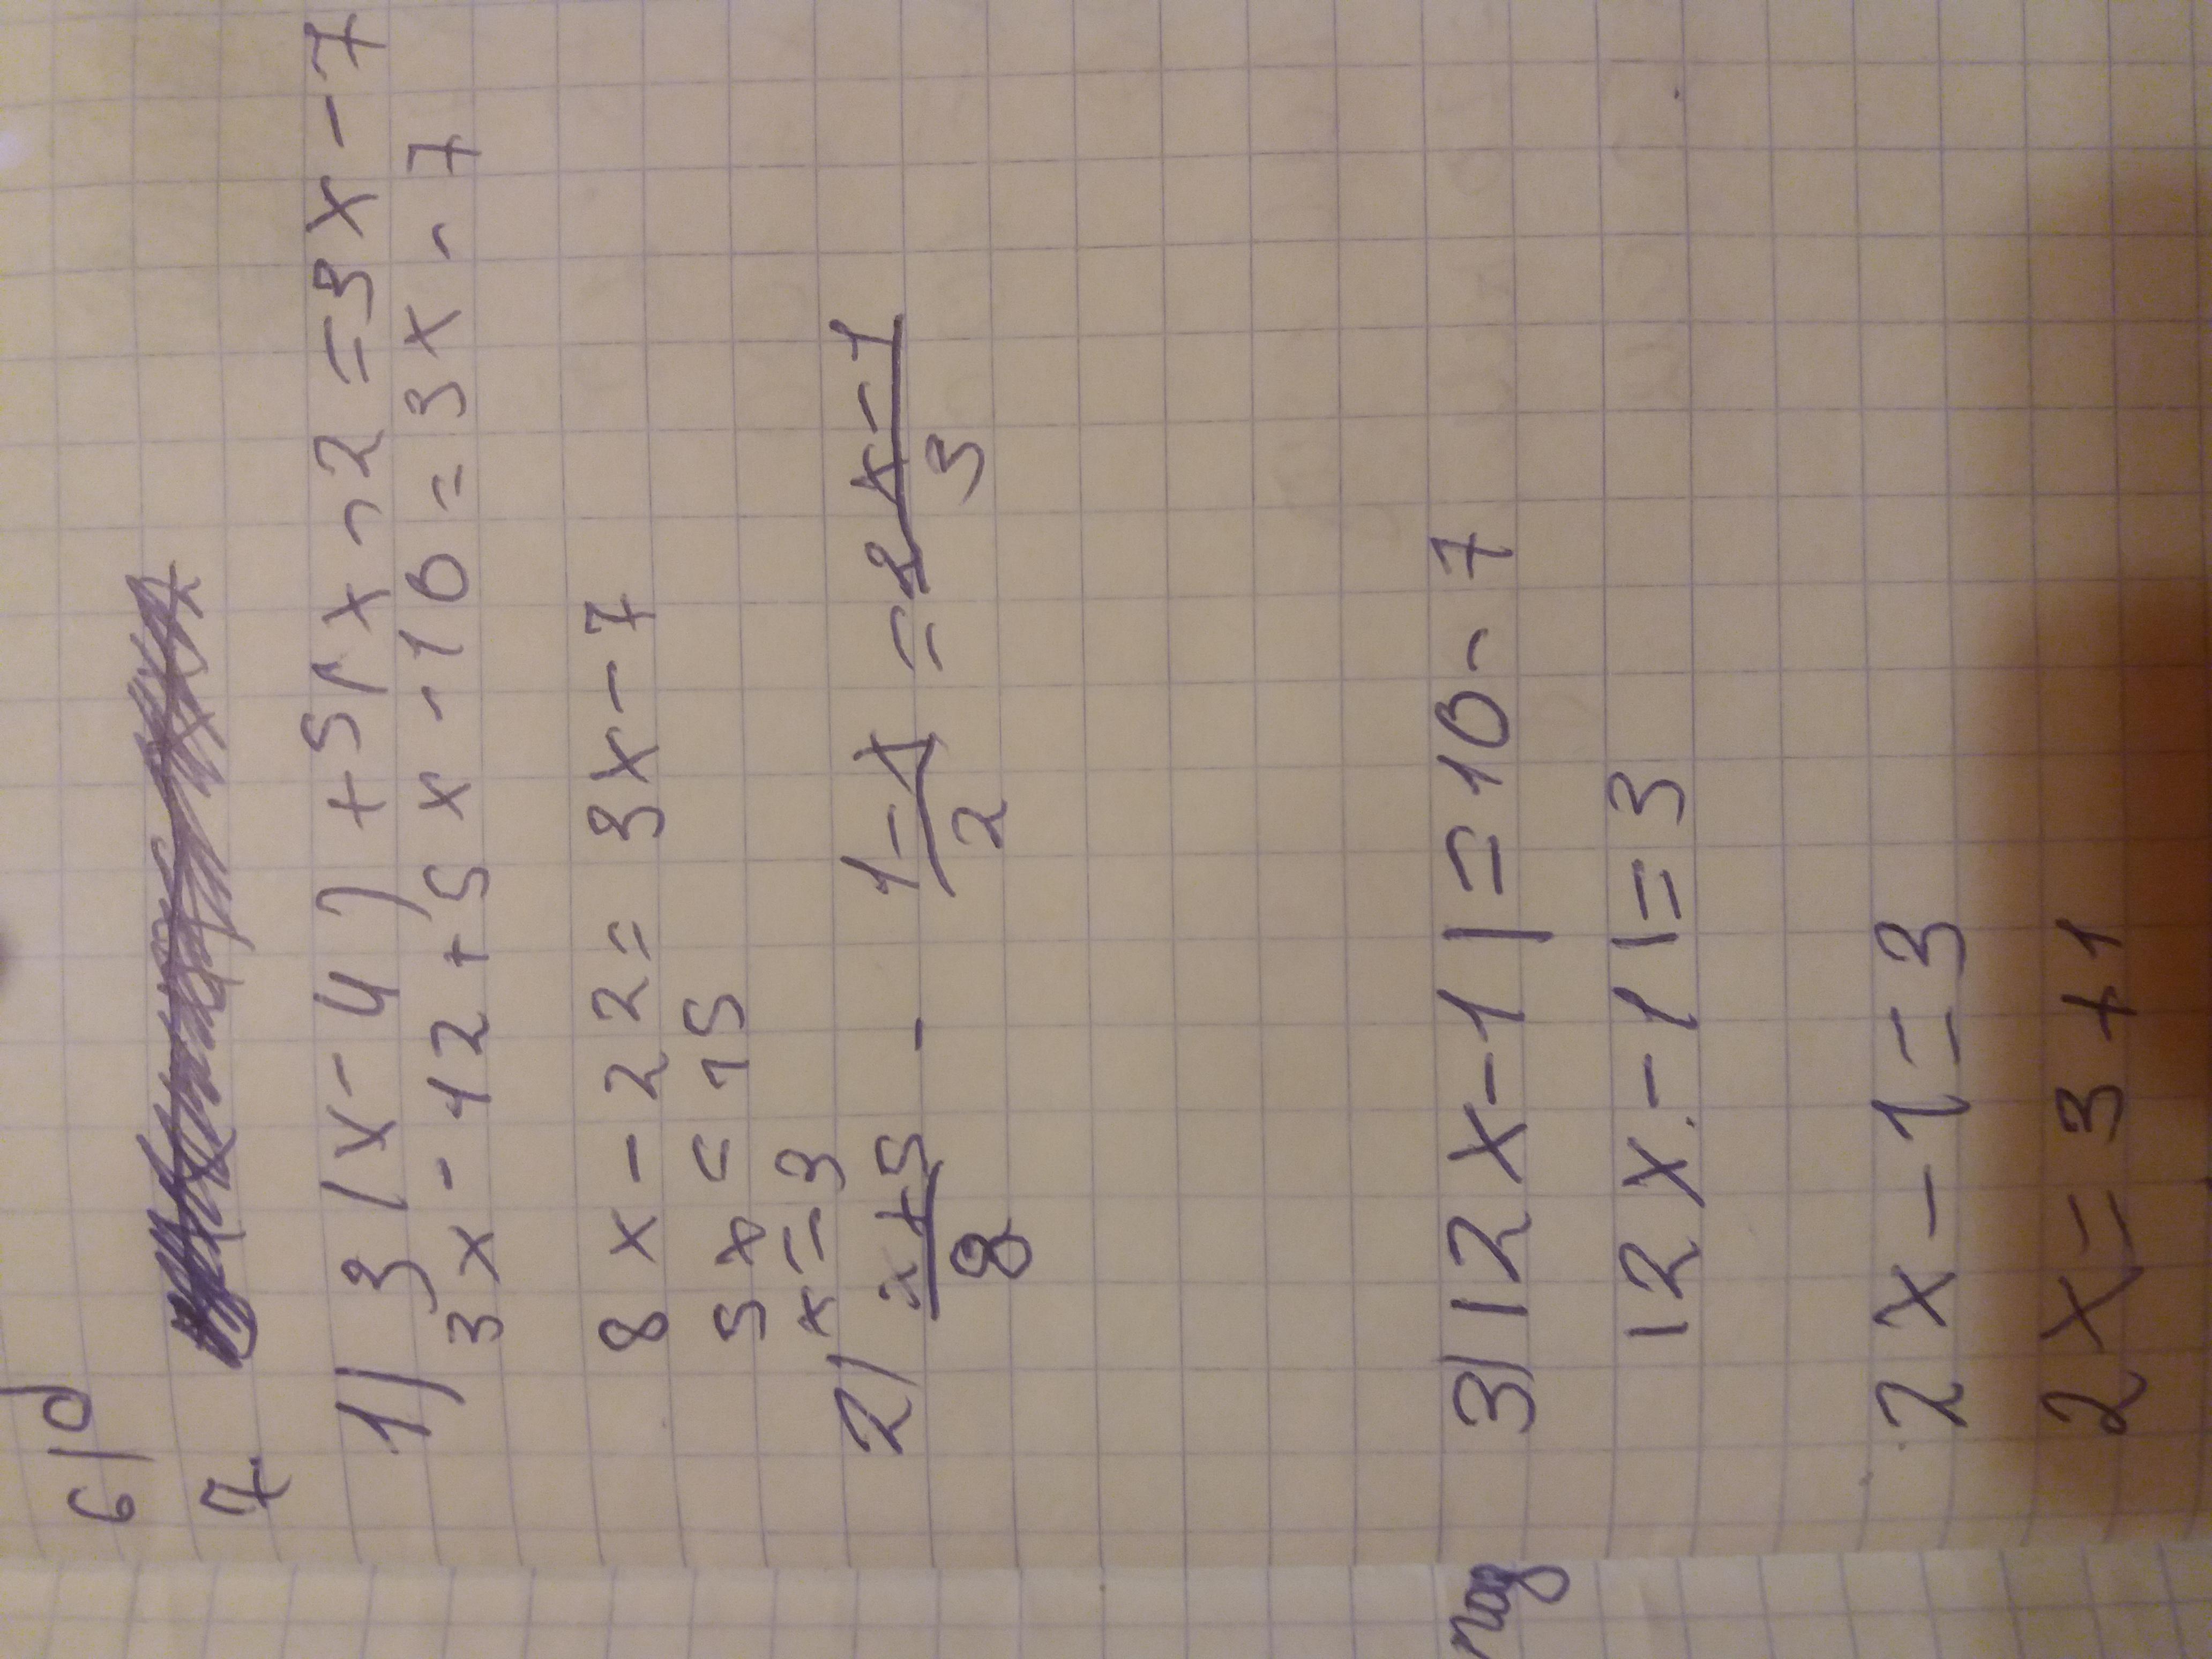 6|d
7.
1) 3(x-4)+5(x-2=3x-7
3x-12+5x-10=3x-7
8x-22=3x-7
5x=15
x=3
2) x+5/8 - 1-x/2 = 2x-1/3
3) |2x-1|=10-7
|2x-1|=3
2x-1=3
2x=3+1